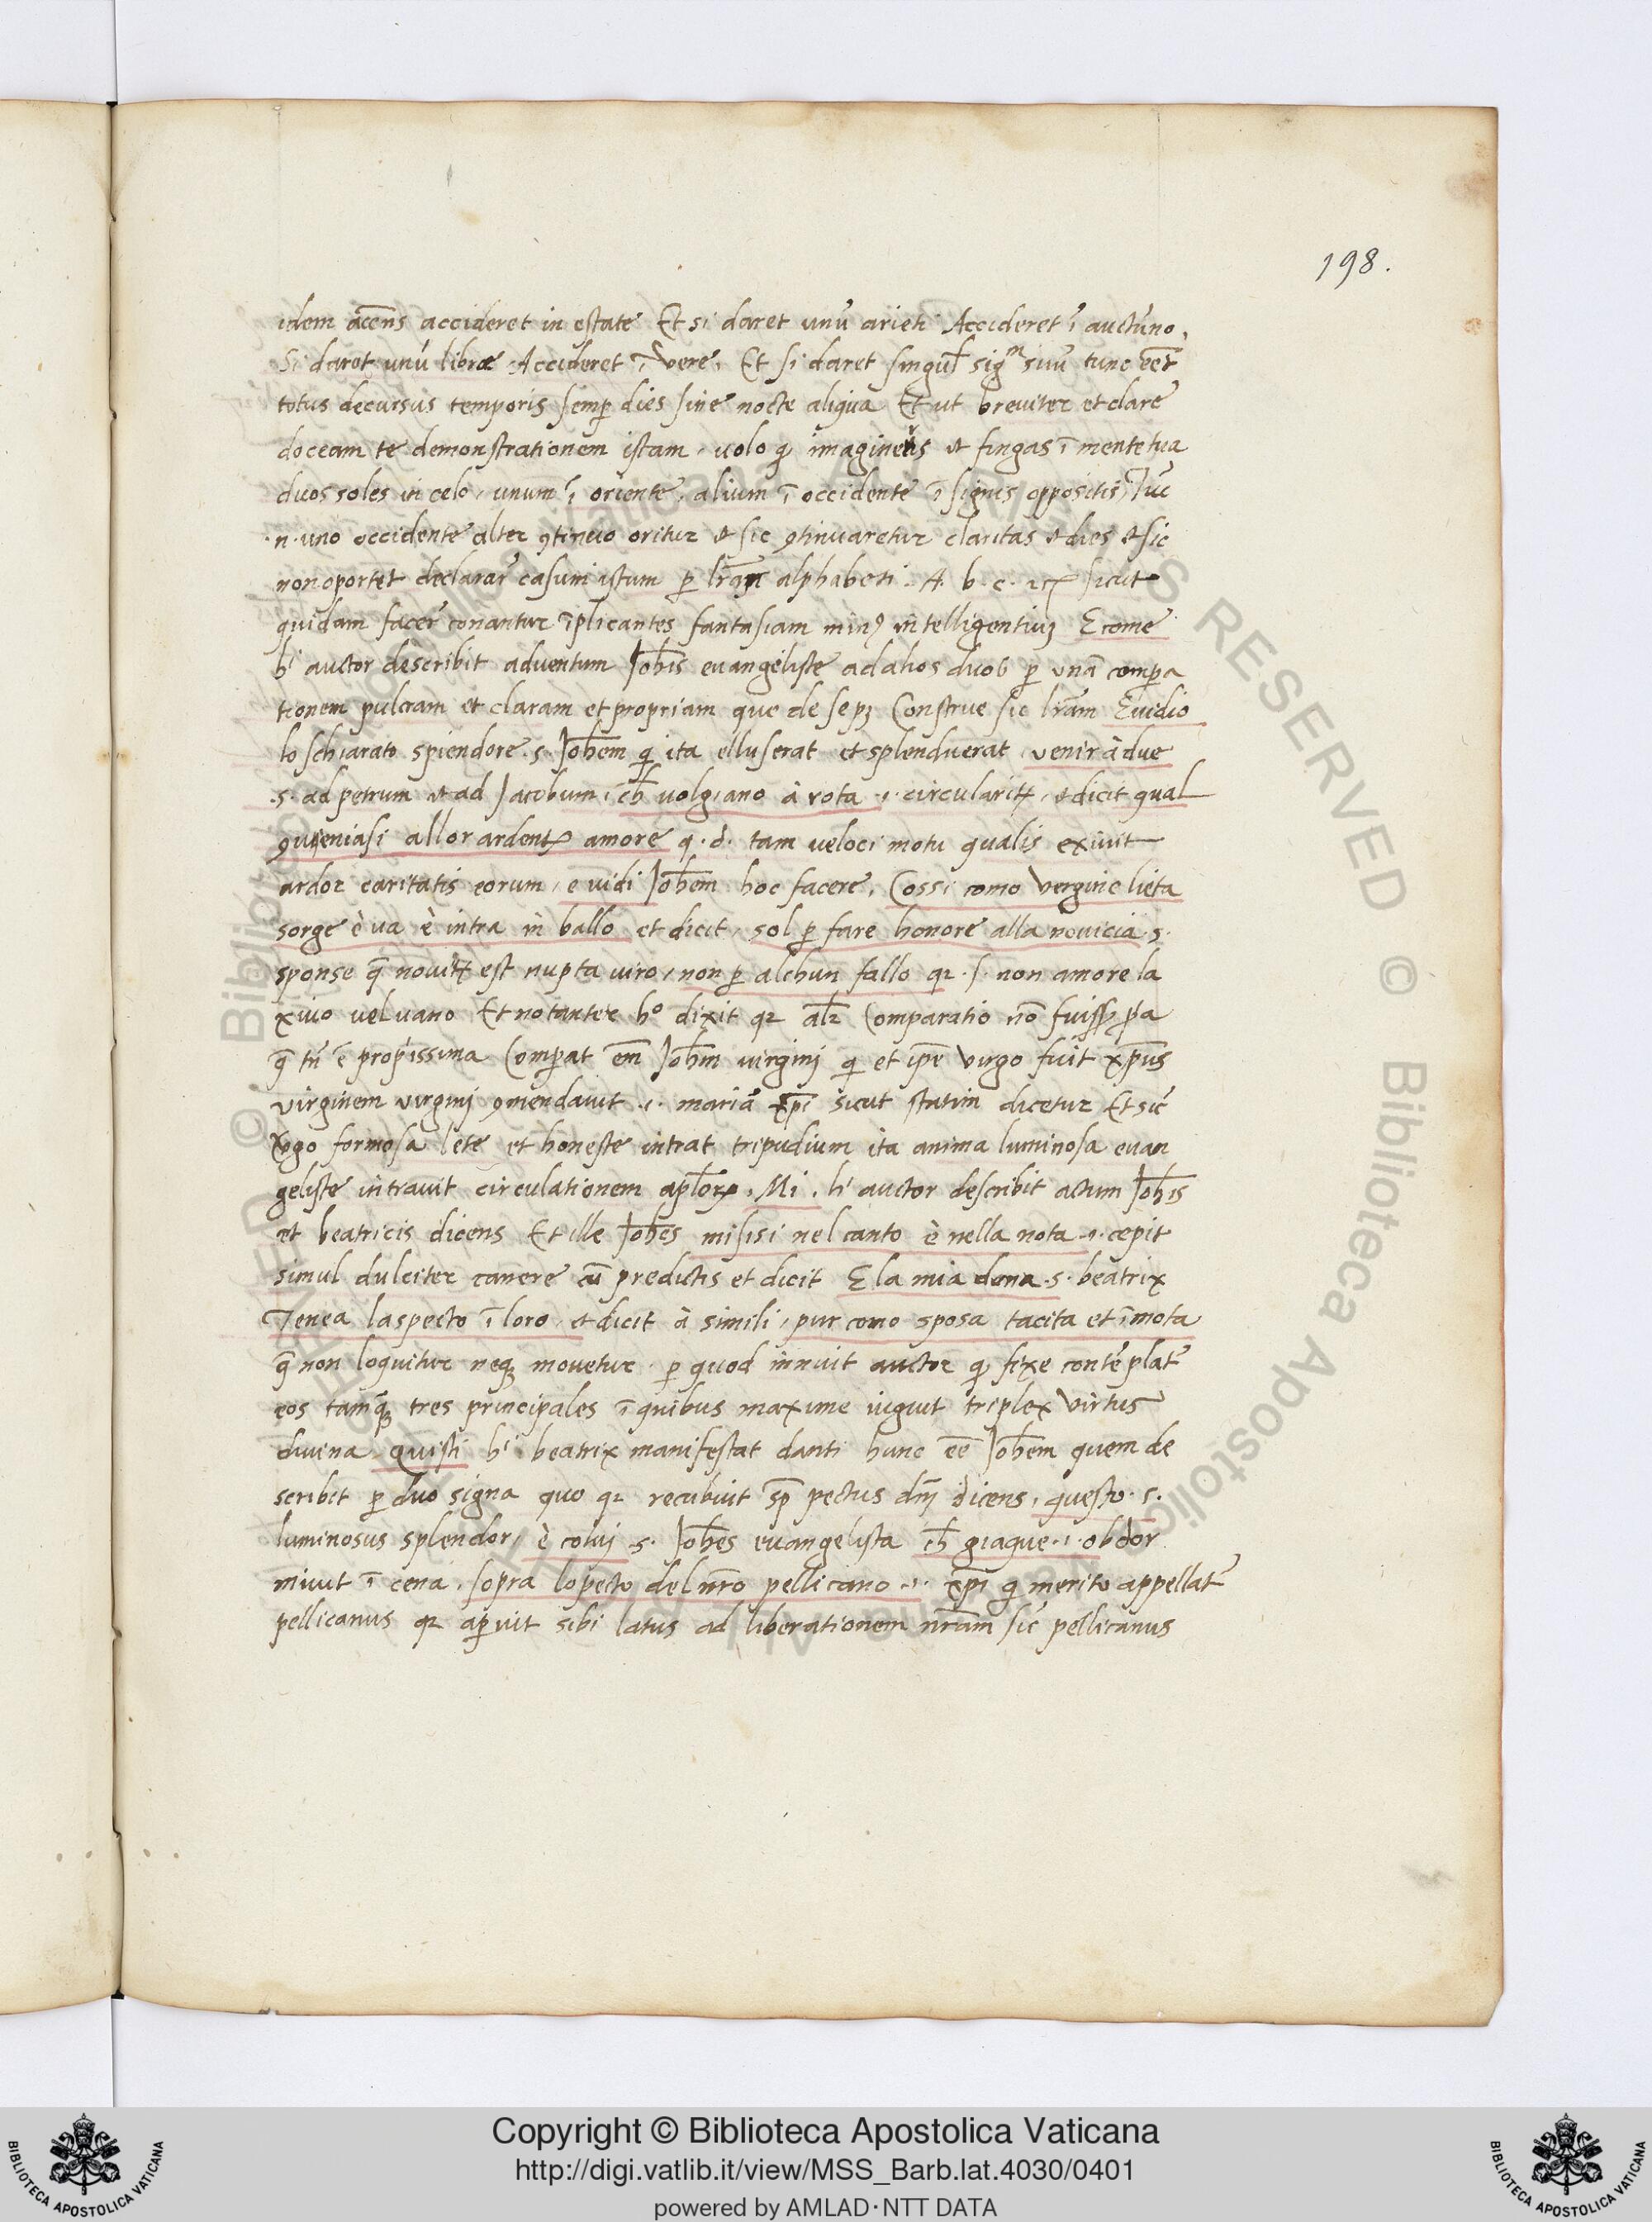 198.
idem acc̄ns accideret in estate Et si daret unū arieti Accideret ī auctūno.
Si daret unū libræ Accideret ī vere. Et si daret singul̄ sigᵐ suū tunc eēt
totus decursus temporis semꝑ dies sine nocte aliqua Et ut breviter et clare
doceam te demonstrationem istam, volo ꝙ imagineris et fingas ī mente tua
duos soles in celo, unum ī oriente, alium ī occidente ī signis oppositis, Tūc
.n. uno occidente alter ꝯtinuo oritur et sic ꝯtinuaretur claritas et dies et sic
non oportet declarar̄ casum istum ꝑ lr̄am alphabeti. A. b. c. sicut
quidam facer̄ conantur īplicantes fantasiam minꝰ intelligentiuꝫ E come
hⁱ auctor describit adventum Joh̄is evangeliste ad alios duos ꝑ unā compa
tionem pulcram et claram et propriam que de se pꝫ Construe sic lr̄am E vidio
lo schiarato spiendore .s. Joh̄em ꝗ ita elluserat et splenduerat, venir à due
.s. ad petrum et ad Jacobum, ch̄ volgiano à rota .i. circularitꝶ, et dicit qual
ꝯveniasi allor ardentꝭ amore q. d. tam veloci motu qualis exivit
ardor caritatis eorum, e vidi Joh̄em hoc facere, Cossi como vergine lieta
sorge è va è intra in ballo et dicit, sol ꝑ fare honore alla novicia .s.
sponse q̄ novitꝶ est nupta viro, non ꝑ alchun fallo qꝛ .s. non amore la
xivo vel vano Et notanter hº dixit qꝛ alꝛ̄ Comparatio nō fuisꝫ ꝓpa
q̄ tn̄ ē propissima Comꝑat em̄ Joh̄m virginj ꝗ et ip̄e virgo fuit xp̄us
virginem virginj ꝯmendavit .i. mariā xp̄i sicut statim dicetur Et sic̄
v̄go formosa lete et honeste intrat tripudium ita anima luminosa evan
geliste intravit circulationem apl̄oꝝ. Mi. hⁱ auctor describit actum Joh̄is
et beatricis dicens Et ille Joh̄es misisi nel canto è nella nota .i. cepit
simul dulciter canere cū predictis et dicit E la mia dona .s. beatrix
Tenea laspecto ī loro, et dicit à simili, pur como sposa tacita et īmota
q̄ non loquitur neqꝫ movetur. ꝑ quod innuit auctor ꝙ fixe contēplat̄
eos tamqꝫ̄ tres principales ī quibus maxime viguit triplex virtus
divina. Quisti hⁱ beatrix manifestat danti hunc eē Joh̄em quem de
scribit ꝑ duo signa quo qꝛ recubuit sp̄ pectus dn̄j dicens, questo .s.
luminosus splendor, è coluj .s. Joh̄es evangelista ch̄ giaque .i. obdor
mivit ī cena, sopra lo pecto del nr̄o pellicano .i. xp̄i ꝗ merito appellat̄
pellicanus qꝛ aꝑuit sibi latus ad liberationem nr̄am sic̄ pellicanus
Copyright © Biblioteca Apostolica Vaticana
http://digi.vatlib.it/view/MSS_Barb.lat.4030/0401
powered by AMLAD·NTT DATA